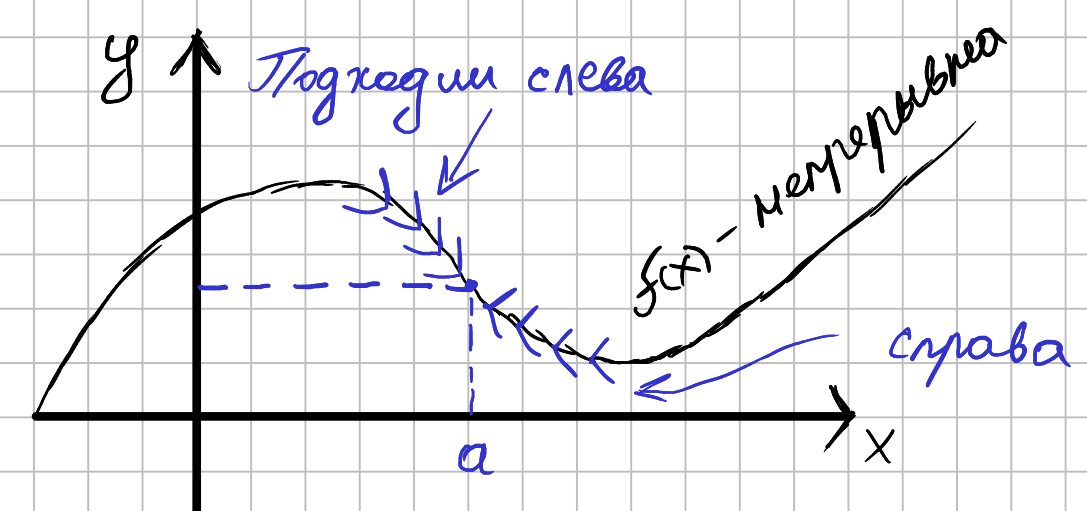 y
Подходим слева
f(x) - непрерывна
справа
a
x